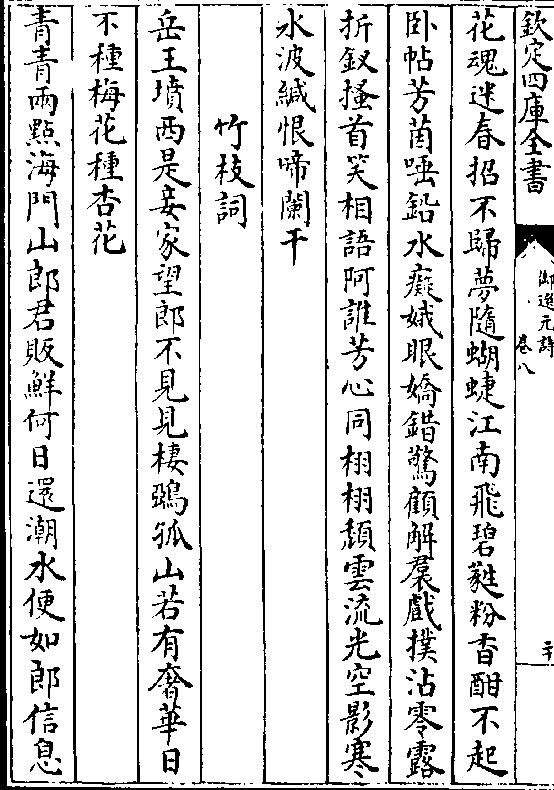 欽定四庫全書
御選元詩
卷八
花魂迷春招不歸夢隨蝴蜨江南飛碧蕤粉香酣不起
卧帖芳茵唾鉛水癡娥眼嬌錯驚顧解裠戲撲沾零露
折釵搔首笑相語阿誰芳心同栩栩頽雲流光空影寒
水波緘恨啼闌干
竹枝詞
岳王墳西是妾家望郎不見見棲鵶孤山若有奢華日
不種梅花種杏花
青青兩點海門山郎君販鮮何日還潮水便如郎信息